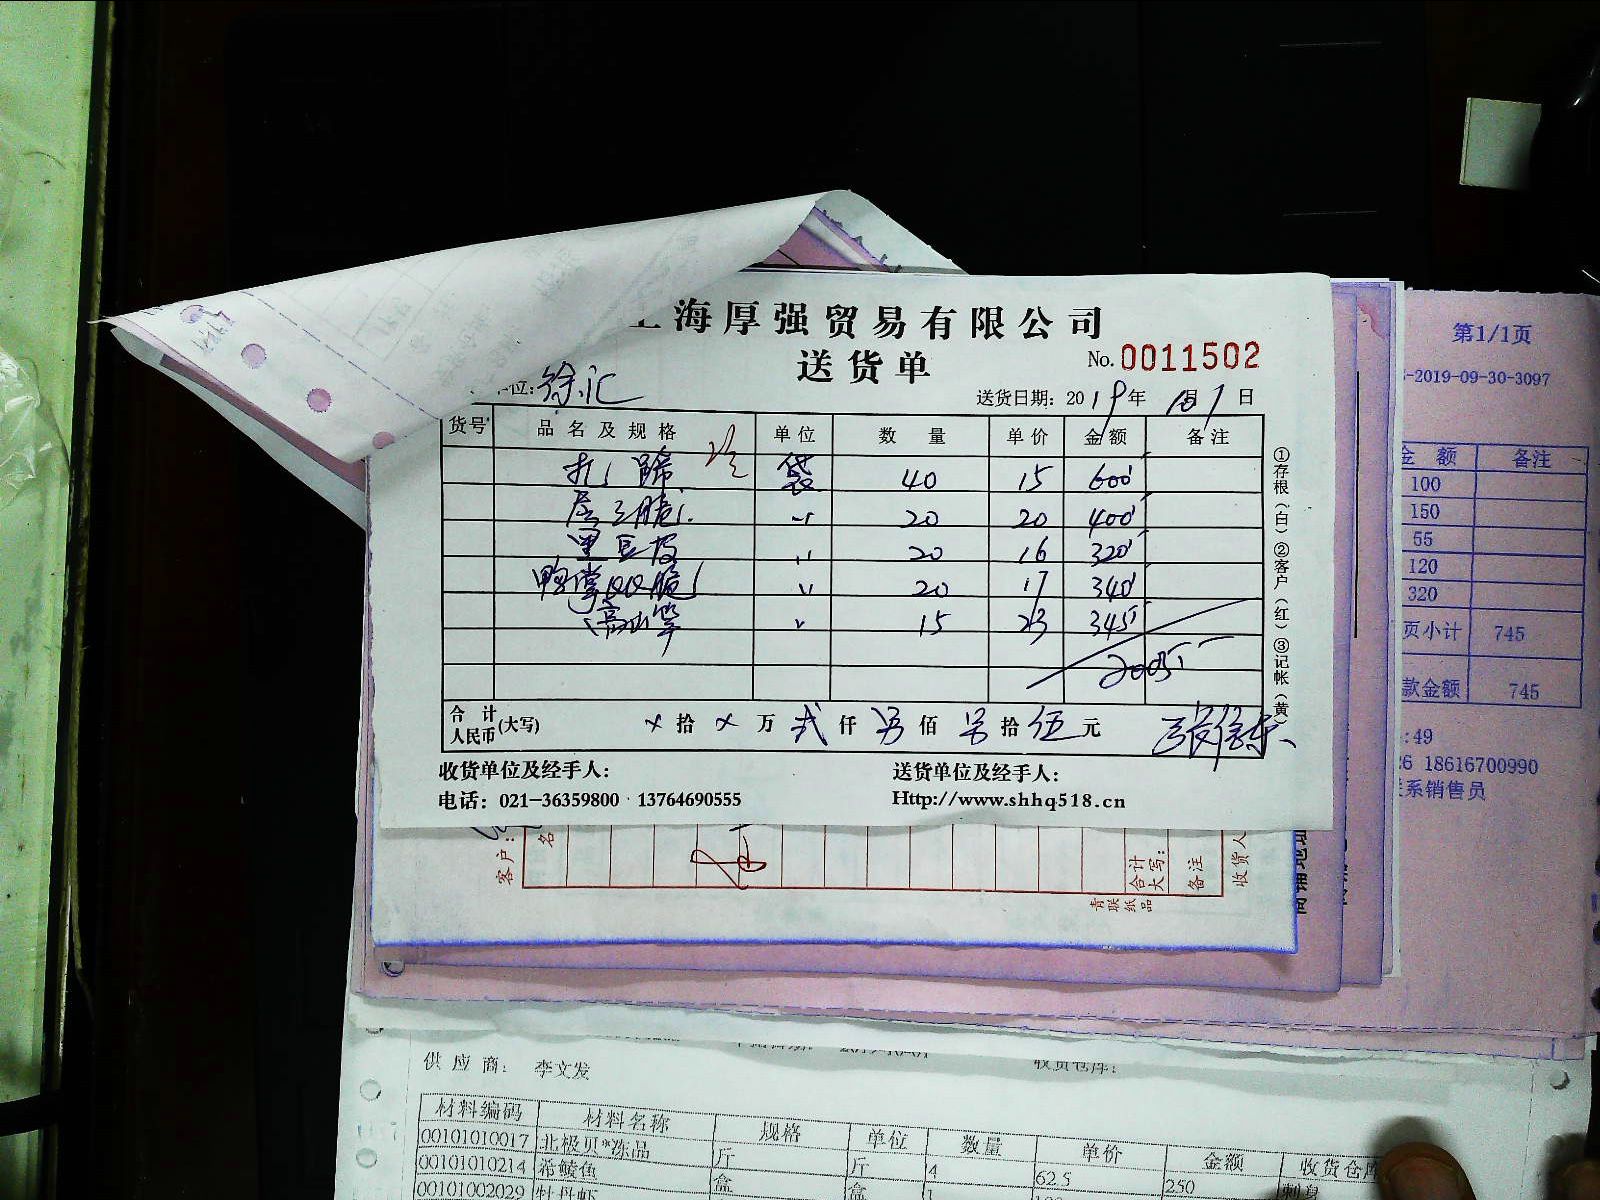 海厚强贸易有限公司
送货单
No. 0011502
位: 徐汇
送货日期: 2019年10月7日
货号 品名及规格 单位 数量 单价 金额 备注
扎蹄 袋 40 15 600
20 20 400
黑豆皮 〃 20 16 320
鸭掌 〃 20 17 340
高山笋 〃 15 23 345
2005
合计人民币(大写) ×拾×万贰仟另佰另拾伍元
收货单位及经手人:
送货单位及经手人:
电话: 021-36359800 13764690555
Http://www.shhq518.cn
①存根(白)②客户(红)③记帐(黄)
第1/1页
-2019-09-30-3097
金额 备注
100
150
55
120
320
页小计 745
款金额 745
:49
18616700990
系销售员
客户:
名
合计
大写:
备注
收货人
青联纸品
供应商: 李文发
收货仓库:
材料编码 材料名称 规格 单位 数量 单价 金额 收货仓库
00101010017 北极贝*冻品 斤 斤 4 62.5 250
00101010214 希鲮鱼 盒 盒 1
00101002029 牡丹虾